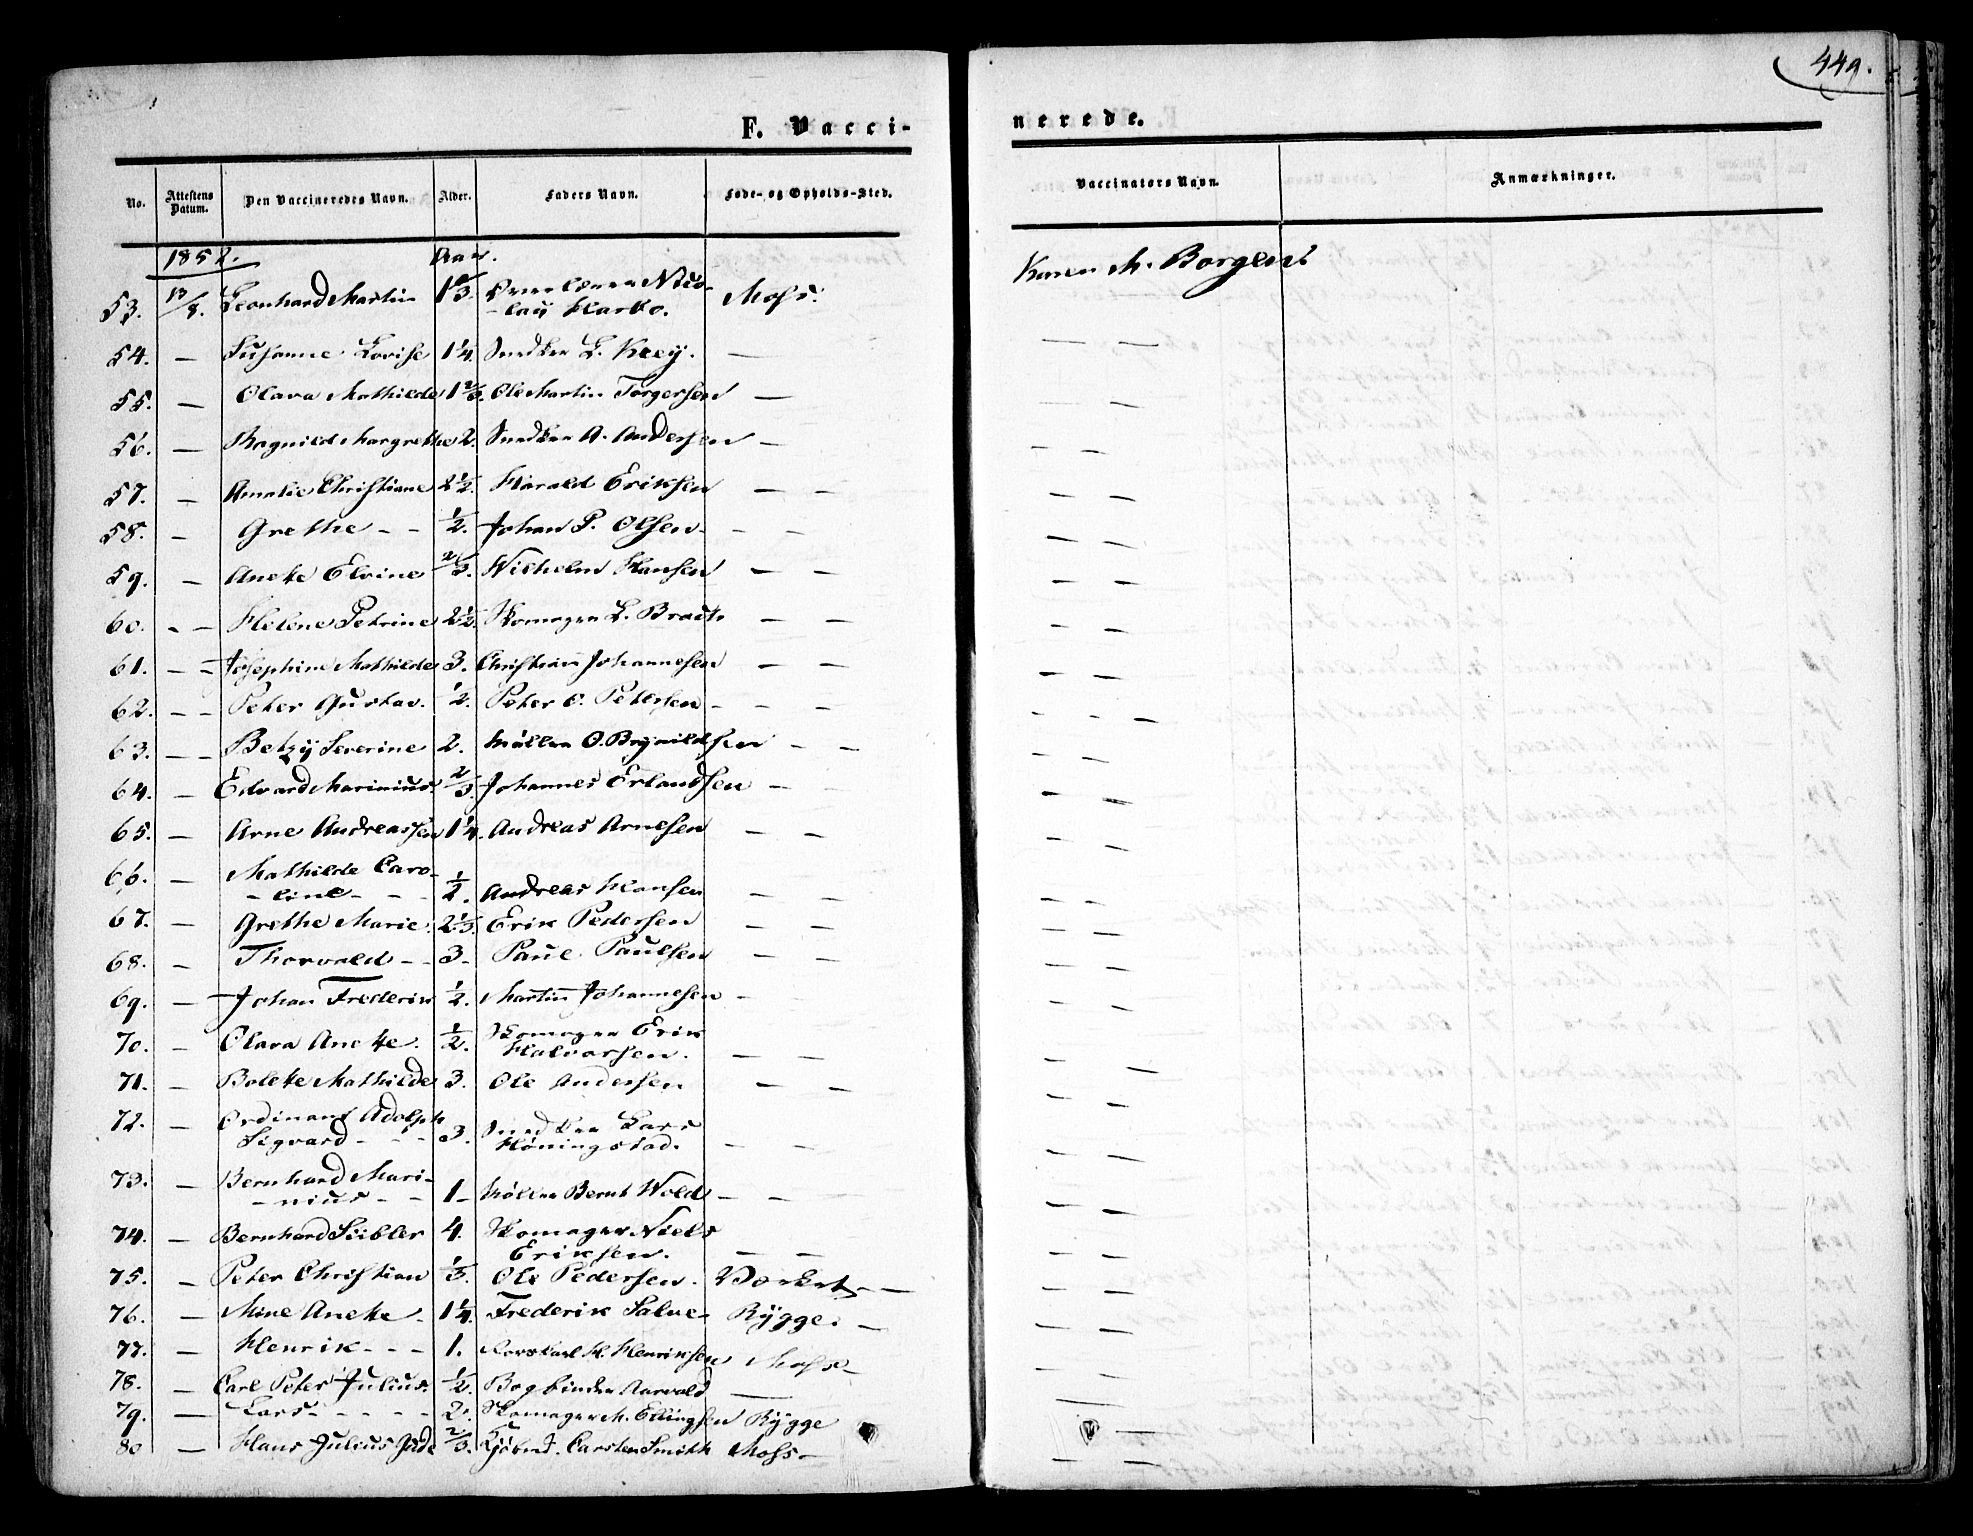 449.
F. Vacci-
nerede.
No. Attestens Datum. Den Vaccineredes Navn. Alder. Faders Navn. Føde- og Opholds-Sted. Vaccinators Navn. Anmærkninger.
1852. Aar.
53. 13/8. Leonhard Martin Nico- Moss. Karen M. Borgens
-lay Harbo.
54. — Susanne Lovise 1¼. Snedker L. Krey. — — —
55. — Olava Mathilde 1⅔. Ole Martin Torgersen — —
56. — Ragnild Margrethe 2. Snedker A. Andersen — — —
57. — Amalie Christiane 2½. Harald Eriksen — — — —
58. — Grethe - - ½. Johan P. Olsen - — — — —
59. — Anette Elvine ⅔. Wilhelm Hansen — — — —
60. - — Helene Petrine 2½. Skomager L. Bradt — — — —
61. — — Josephine Mathilde 3. Christian Johannesen — — — —
62. — — Peter Gustav. ½. Peter O. Pettersen - — — — —
63. — — Betzy Severine 2. Møller O. Brynildsen — — — —
64. — Edvard Marinius. ⅔. Johannes Erlandsen — — —
65. — Arne Andreassen 1¼. Andreas Arnesen — — — —
66. — Mathilde Caro-
-line - - - ½. Andreas Hansen — — — —
67. — Grethe Marie. 2⅓. Erik Pedersen — — — —
68. — Thorvald - - 3. Paul Paulsen — — — —
69. — Johan Frederik ½. Martin Johannesen — — —
70. — Olava Anette. ½. Skomager Erik
Halvorsen. — — — —
71. — Bolette Mathilde 3. Ole Andersen — — — —
72. — Ordinant Adolph Snedker Lars
Sigvard - - - 3. Höningstad. — — — —
73. — Bernhard Mari-
-nius - - 1 - Møller Bernt Wold — — — —
74. — Bernhard Siibler 4. Skomager Niels
Eriksen. — — — —
75. — Peter Christian ⅓. Ole Pedersen. Værket — — — —
76. — Mine Anette. 1¼. Frederik Salve- Rygge. — — —
77. — Henrik - - - 1. H. Henriksen Moss — — —
78. — Carl Peter Julius. ½. Bogbinder Aarvold — — —
79. — Lars - - - - - 2. Skomager M. Ellingsen Rygge — —
80 — Hans Julius ⅔. Kjøbmd. Carsten Smith Moss — — —